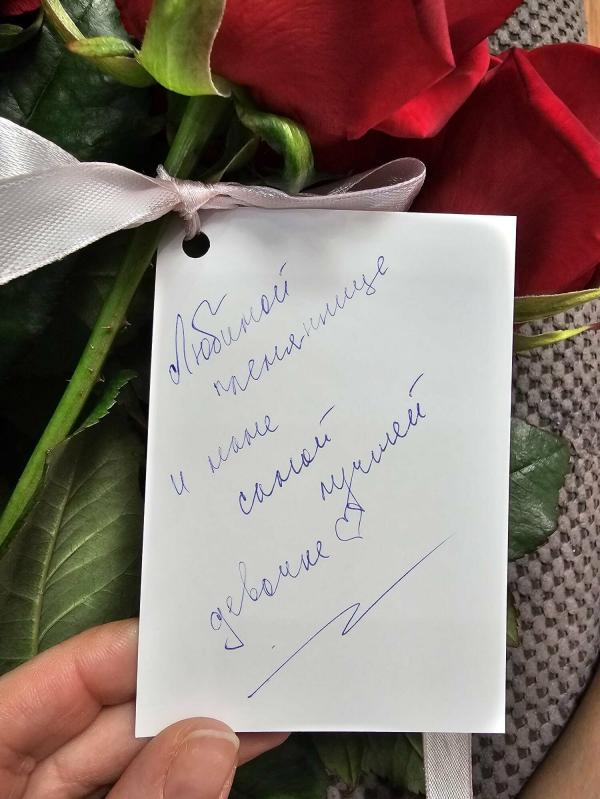 Любимой
племяннице
и маме
самой лучшей
девочке ♡